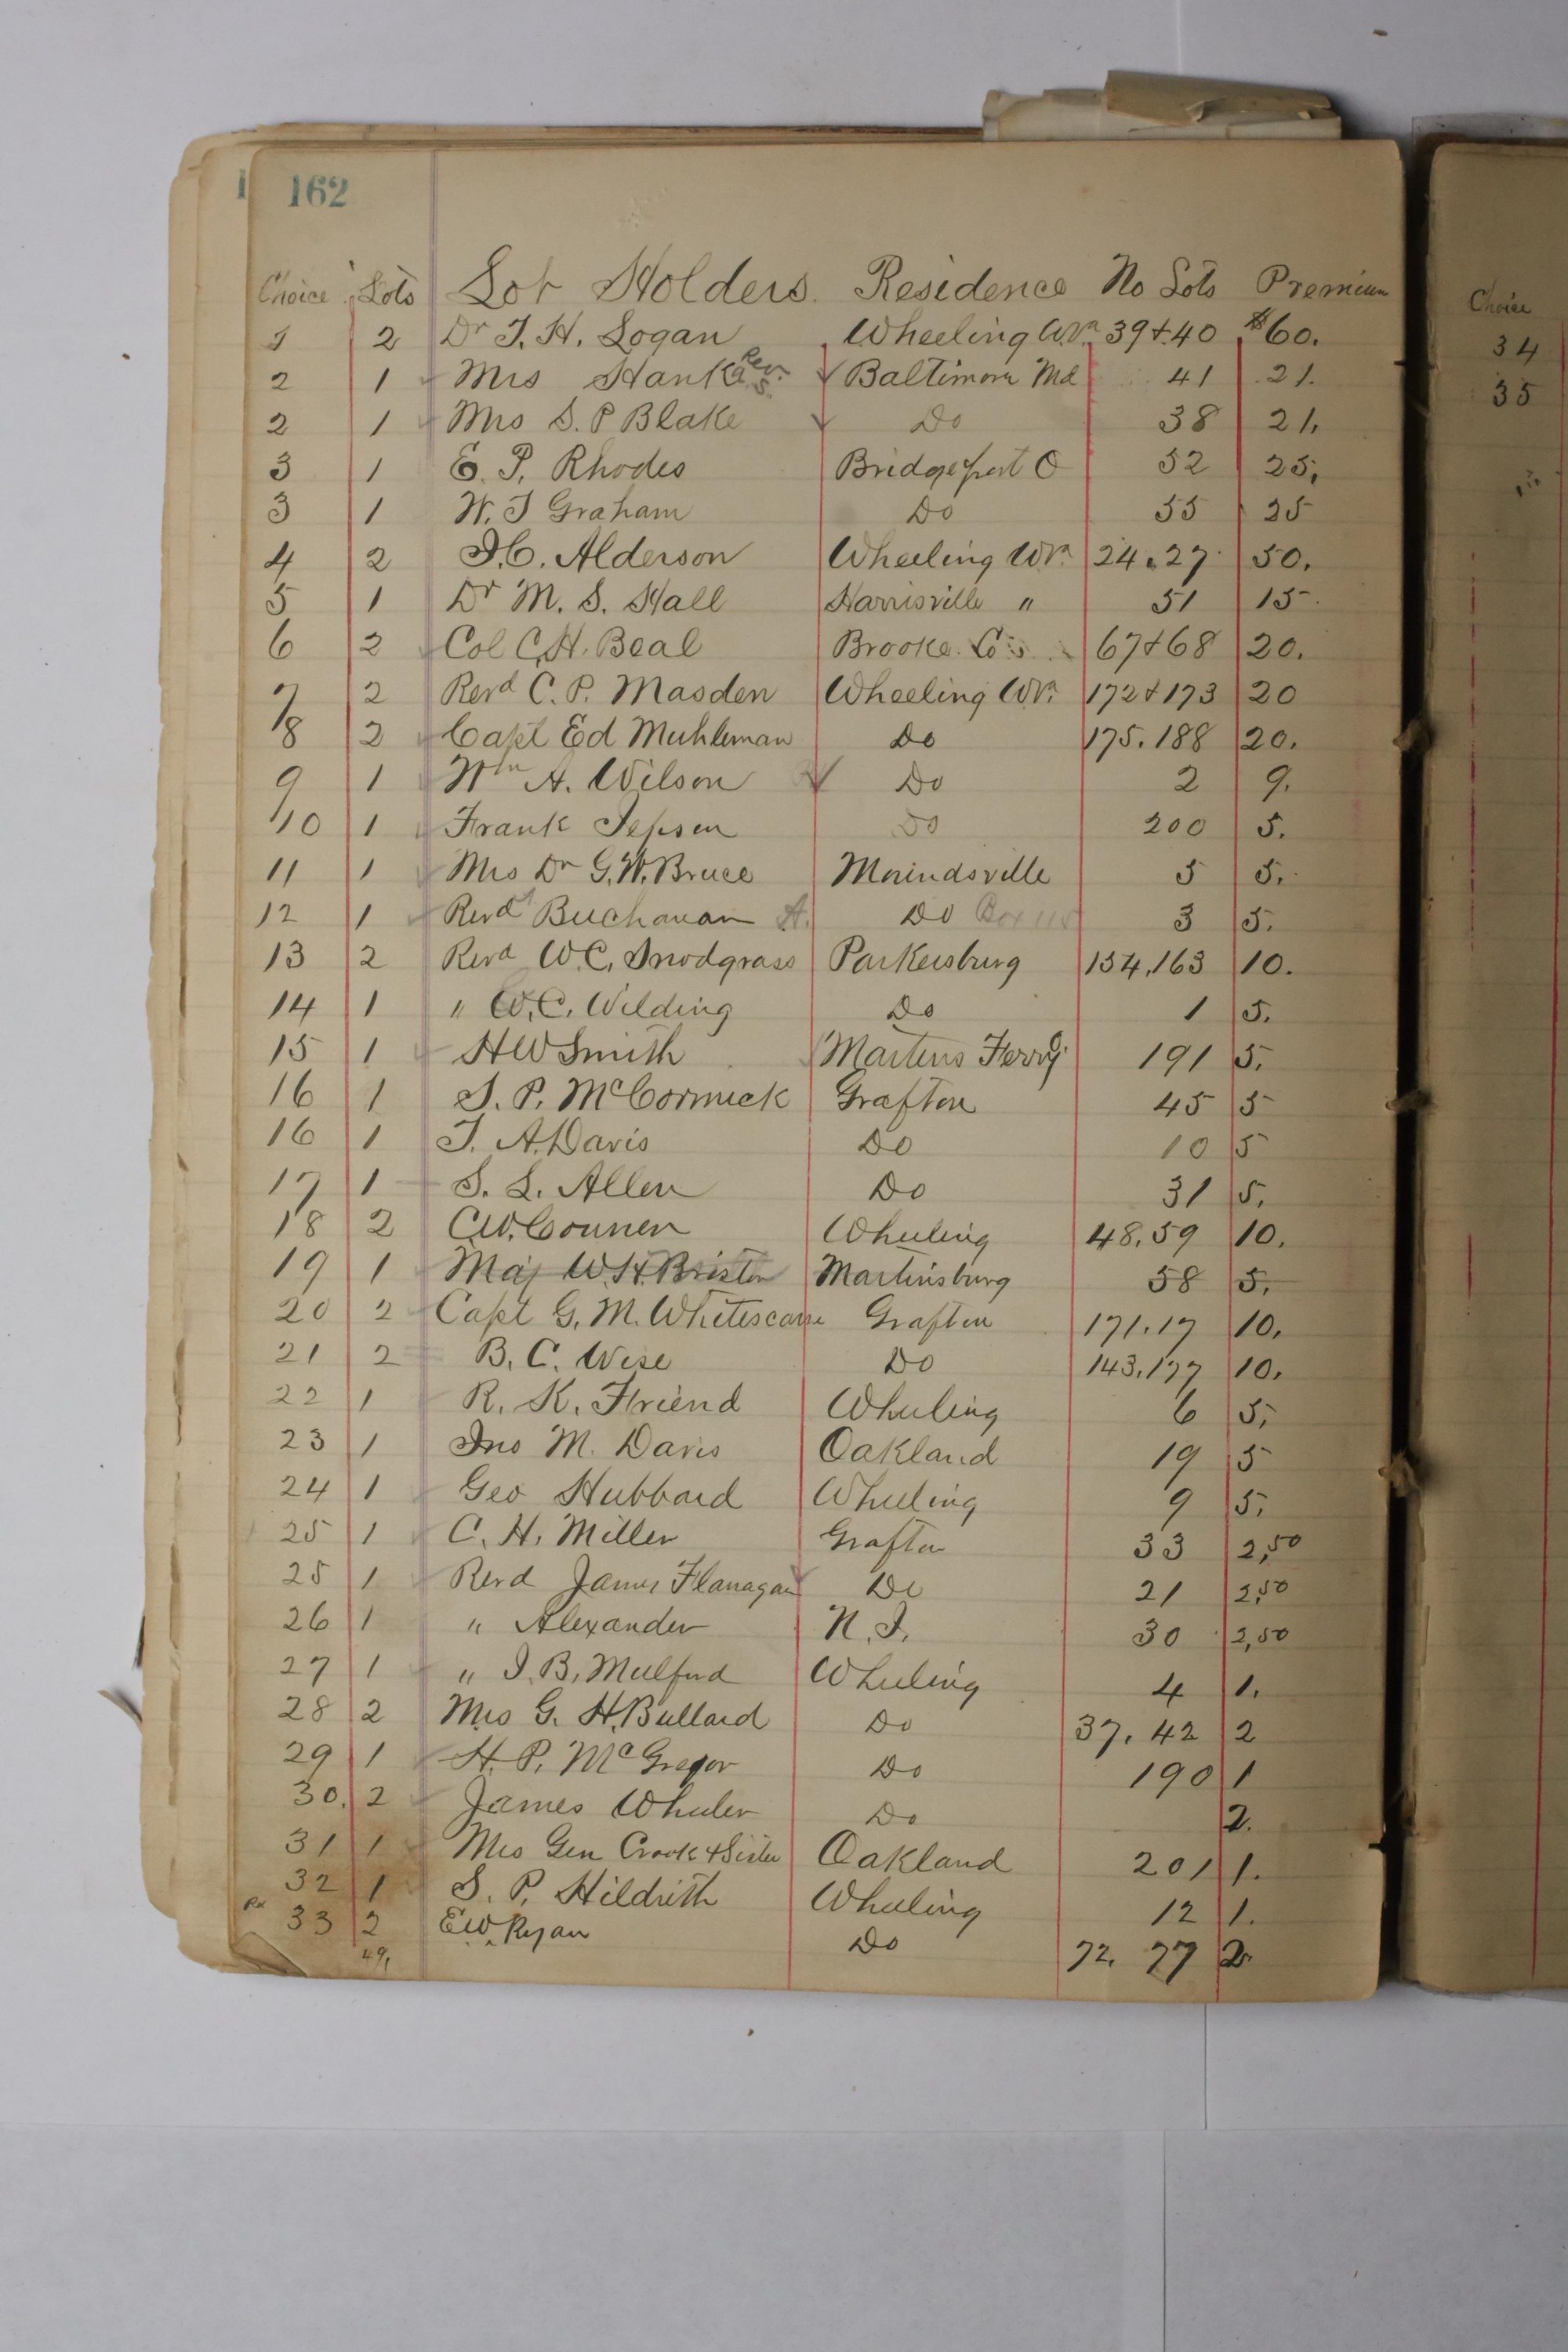 162
Choice Lots Lot Holders. Residence No Lots Premium
1 2 Dr T. H. Logan Wheeling W.Va 39 & 40 $60.
2 1 Mrs Hanka Baltimore Md 41 21.
2 1 Mrs S. P Blake Do 38 21.
3 1 E. P. Rhodes Bridgeport O 52 25.
3 1 W. J Graham Do 55 25
4 2 J. C. Alderson Wheeling WVa 24.27 50.
5 1 Dr M. S. Hall Harrisville " 51 15
6 2 Col C. H. Beal Brooke Co 67 & 68 20.
7 2 Revd C. P. Masden Wheeling WVa 172 & 173 20
8 2 Capt Ed Muhleman Do 175. 188 20.
9 1 Wm A. Wilson Do 2 9.
10 1 Frank Jepson Do 200 5.
11 1 Mrs Dr G. W. Bruce Moundsville 5 5.
12 1 Revd Buchanan A. Do Box 115 3 5.
13 2 Revd W. C. Snodgrass Parkersburg 154,163 10.
14 1 " W. C. Wilding Do 1 5.
15 1 H W Smith Martins Ferry 191 5.
16 1 J. P. McCormick Grafton 45 5
16 1 J. A. Davis Do 10 5
17 1 S. L. Allen Do 31 5.
18 2 C. W. Conner Wheeling 48.59 10.
19 1 Maj W. H. Bristor Martinsburg 58 5.
20 2 Capt G. M. Whitescarver Grafton 171.17 10.
21 2 B. C. Wise Do 143.177 10.
22 1 R. K. Friend Wheeling 6 5.
23 1 Jno M. Davis Oakland 19 5
24 1 Geo Hubbard Wheeling 9 5.
25 1 C. H. Miller Grafton 33 2,50
25 1 Revd James Flanagan Do 21 2,50
26 1 " Alexander N. J. 30 2,50
27 1 " J. B. Mulford Wheeling 4 1.
28 2 Mrs G. H. Bullard Do 37. 42 2
29 1 H. P. McGregor Do 190 1
30. 2 James Wheeler Do 2.
31 1 Mrs Gen Crook & Sister Oakland 201 1.
32 1 S. P. Hildrith Wheeling 12 1.
33 2 E. W. Ryan Do 72. 77 2.
49.
Choice
34
35